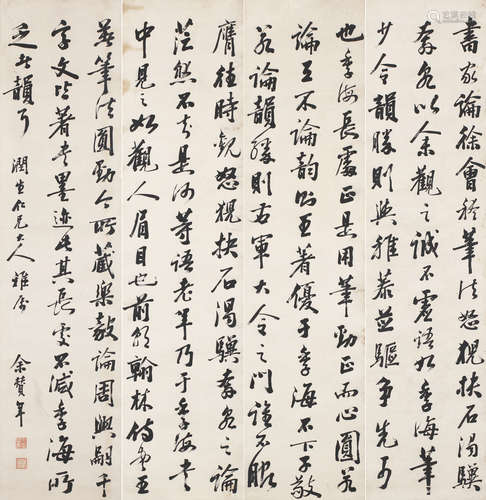 書家論徐會稽筆法怒猊抉石渴驥
奔泉以余觀之誠不虛語如季海筆
少令韻勝則與稚恭並驅爭先可
也季海長處正是用筆勁正而心圓若
論工不論韵則王著優于季海不下子敬
若論韻勝則右軍大令之門誰不服
膺往時觀怒猊抉石渴驥奔泉之論
茫然不知是何等語老年乃于季海書
中見之如觀人眉目也前朝翰林侍書王
著筆法圓勁今所藏樂毅論周興嗣千
字文皆著書墨迹此其長處不減季海所
乏者韻耳 潤生仁兄大人雅屬 余贊年